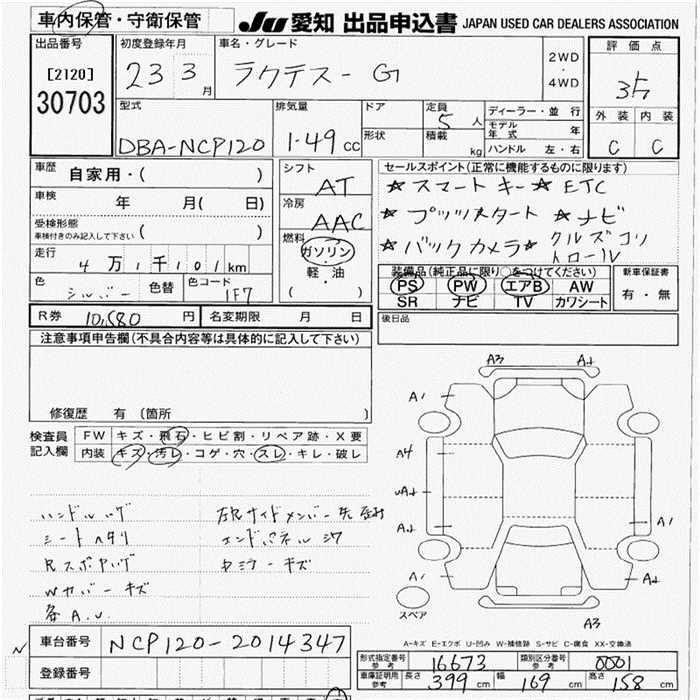 車内保管・守衛保管
JU 愛知 出品申込書 JAPAN USED CAR DEALERS ASSOCIATION
出品番号
[2120]
30703
初度登録年月
23 3月
車名・グレード
ラクテスー G
2WD
・
4WD
評価点
3点
外装 内装
C C
型式
DBA-NCP120
排気量
1.49 cc
ドア
形状
定員
5人
積載
kg
ディーラー・並行
モデル年式 年
ハンドル 左・右
車歴
自家用・( )
車検
年 月( 日)
受検形態
車検付きのみ記入して下さい ( )
走行
4万1千101km
色
シルバー
色替
色コード
1F7
シフト
AT
冷房
AAC
燃料
ガソリン
軽・油
( )
セールスポイント(正常に機能するものに限ります)
☆スマートキー☆ETC
☆プッシュスタート ☆ナビ
☆バックカメラ☆クルズコン
トロール
装備品(純正品に限り○をつけてください)
PS PW エアB AW
SR ナビ TV カワシート
新車保証書
有・無
R券 10,580 円
名変期限 月 日
後日品
注意事項申告欄(不具合内容等は具体的に記入して下さい)
修復歴 有 〔箇所 〕
検査員
記入欄
FW キズ・飛石・ヒビ割・リペア跡・X要
内装 キズ・汚レ・コゲ・穴・スレ・キレ・破レ
ハンドルハゲ
シートヘタリ
Wカバーキズ
各A.U.
エンドパネルシワ
キズ
A3
A1
A1
A1
A1
A3
スペア
A-キズ E-エクボ U-凹み W-補修跡 S-サビ C-腐食 XX-交換済
車台番号 NCP120-2014347
登録番号
形式指定番号
参考
16673
類別区分番号
参考
0001
車庫証明用
参考
長さ 399cm 幅 169cm 高さ 158cm